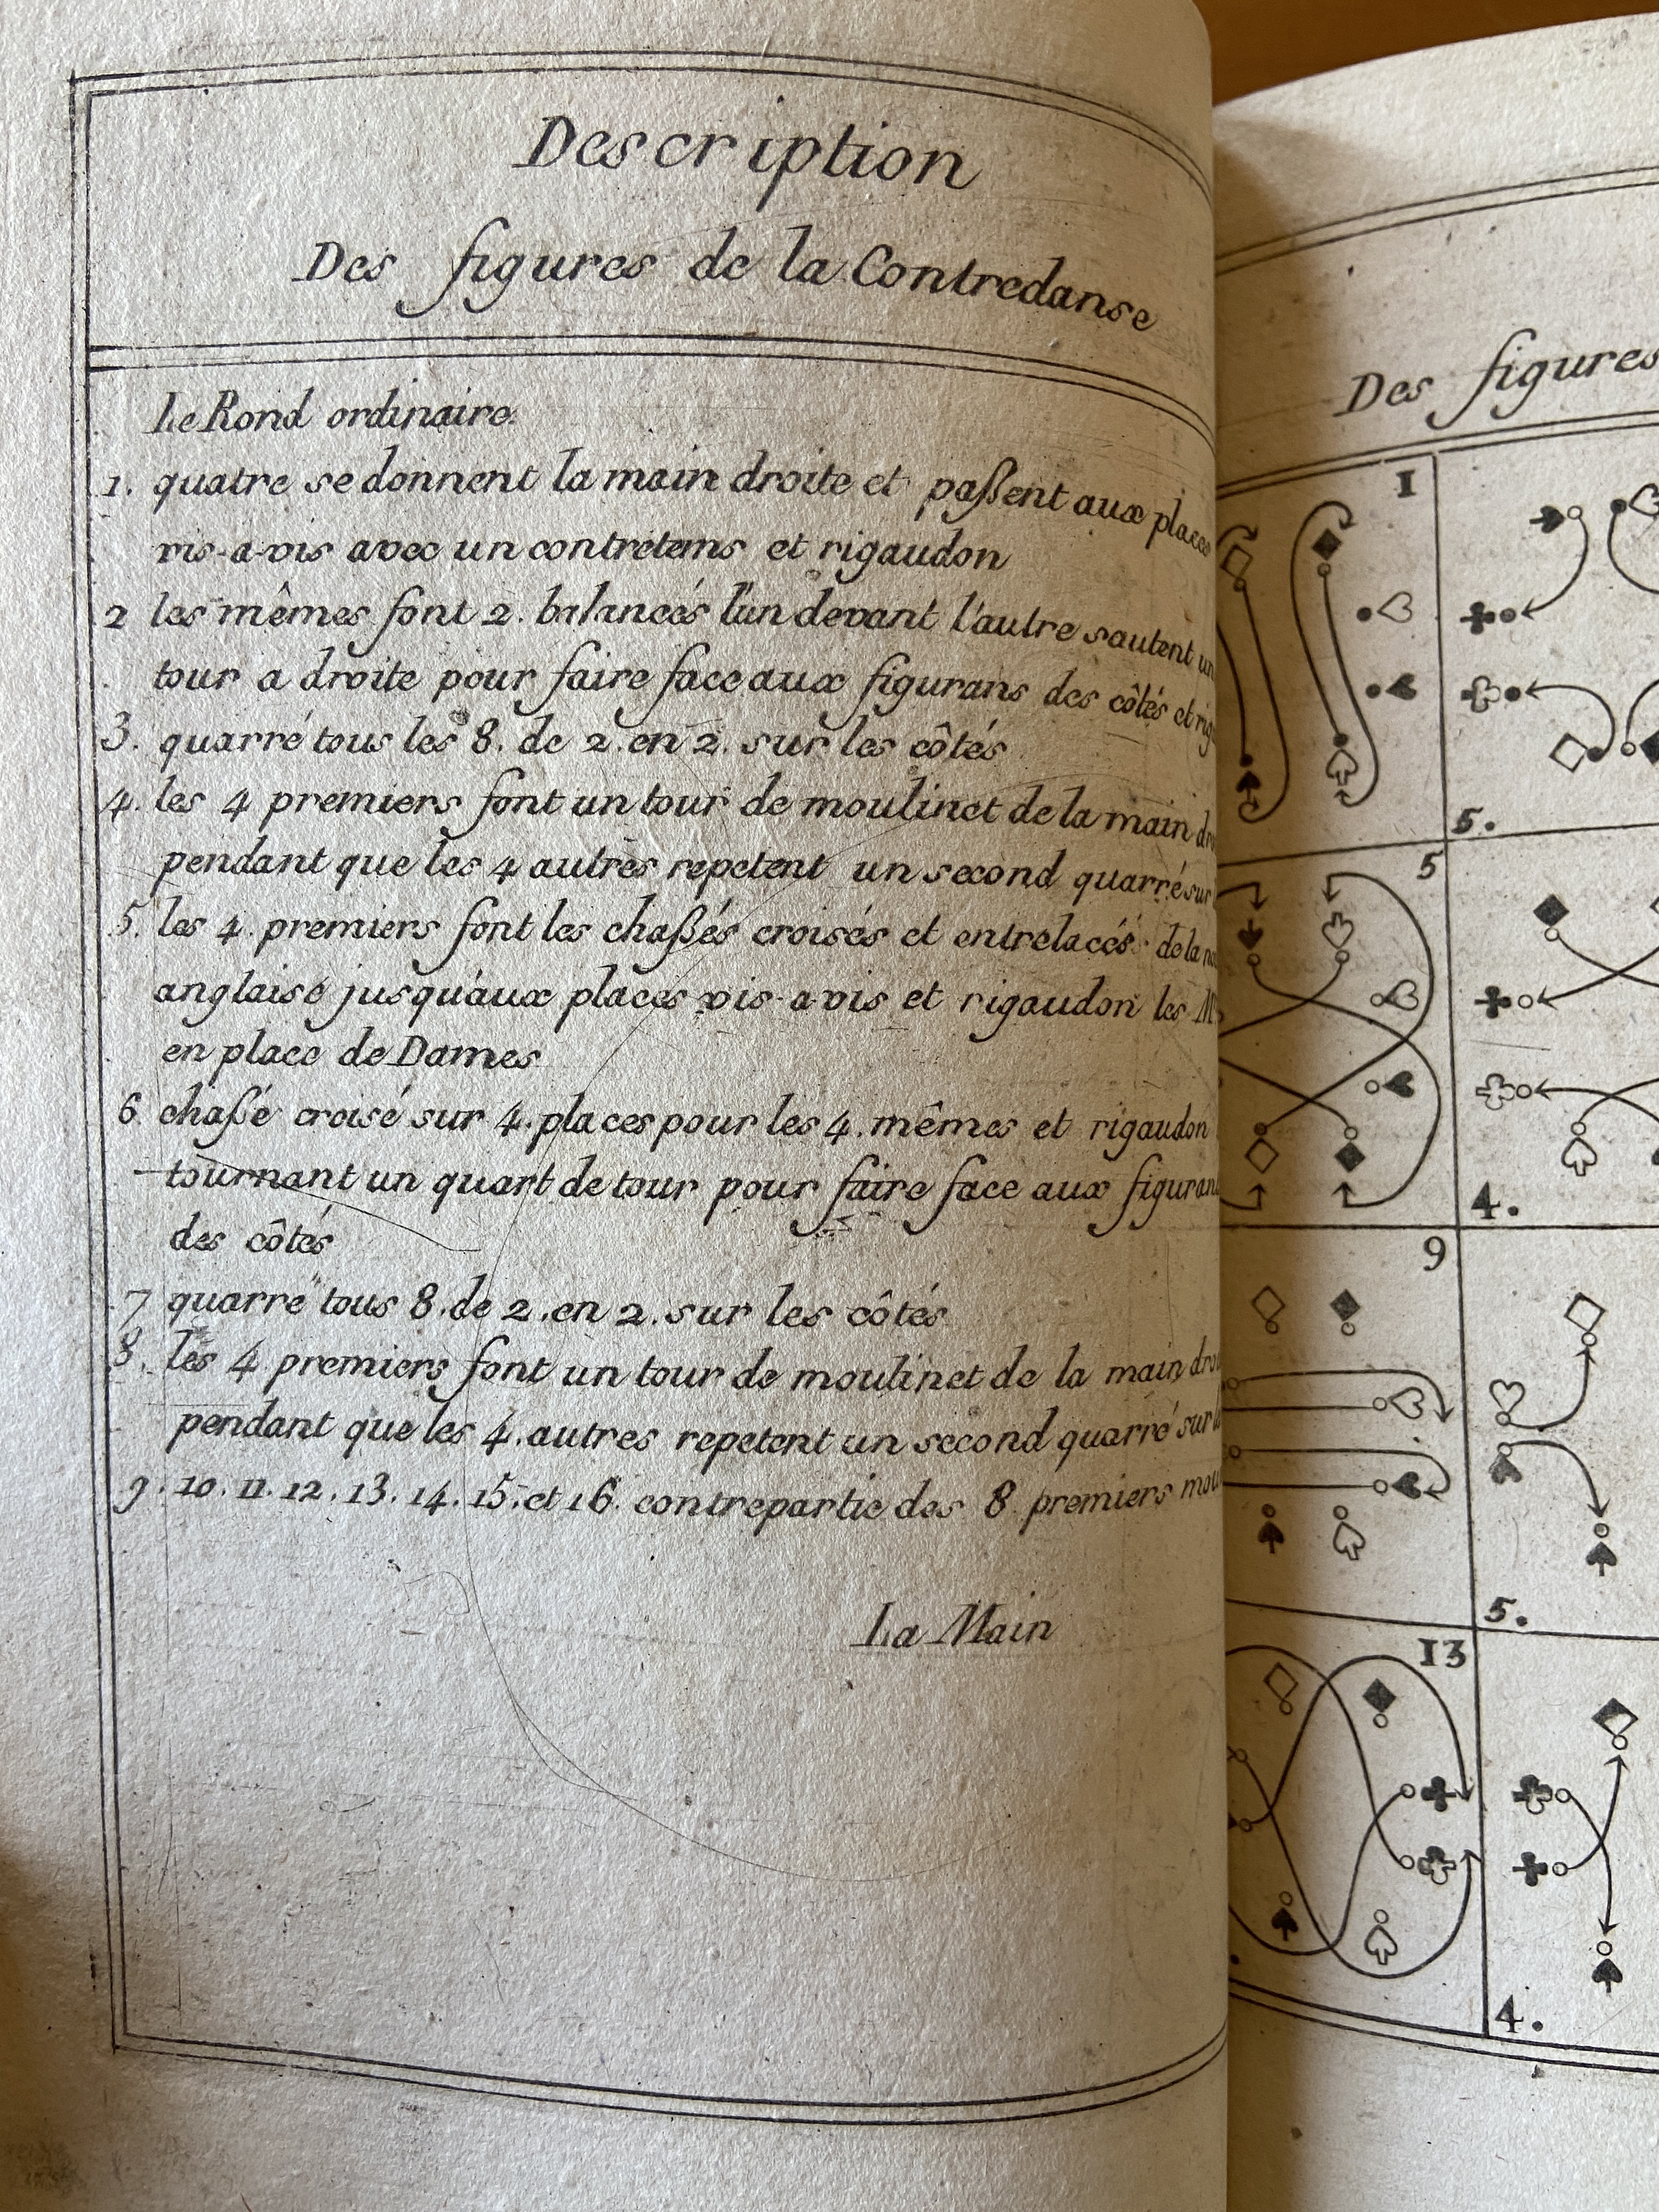 Description
Des figures de la Contredanse
Le Rond ordinaire.
1. quatre se donnent la main droite et paßent aux places
vis-a-vis avec un contretems et rigaudon
2 les mêmes font 2. balancés l'un devant l'autre sautent un
tour a droite pour faire face aux figurans des côtés et
3. quarré tous les 8. de 2. en 2. sur les côtés
4. les 4 premiers font un tour de moulinet de la main
pendant que les 4 autres repetent un second quarré sur
5. les 4. premiers font les chaßés croisés et entrelacés de la
anglaise jusqu'aux places vis-a-vis et rigaudon les
en place de Dames
6 chaßé croisé sur 4. places pour les 4. mêmes et rigaudon
tournant un quart de tour pour faire face aux figurans
des côtés
7 quarré tous 8. de 2. en 2. sur les côtés
8. les 4 premiers font un tour de moulinet de la main
pendant que les 4. autres repetent un second quarré sur
9. 10. 11. 12. 13. 14. 15. et 16. contrepartie des 8 premiers
La Main
Des figures
1
5.
5
4.
9
5.
13
4.